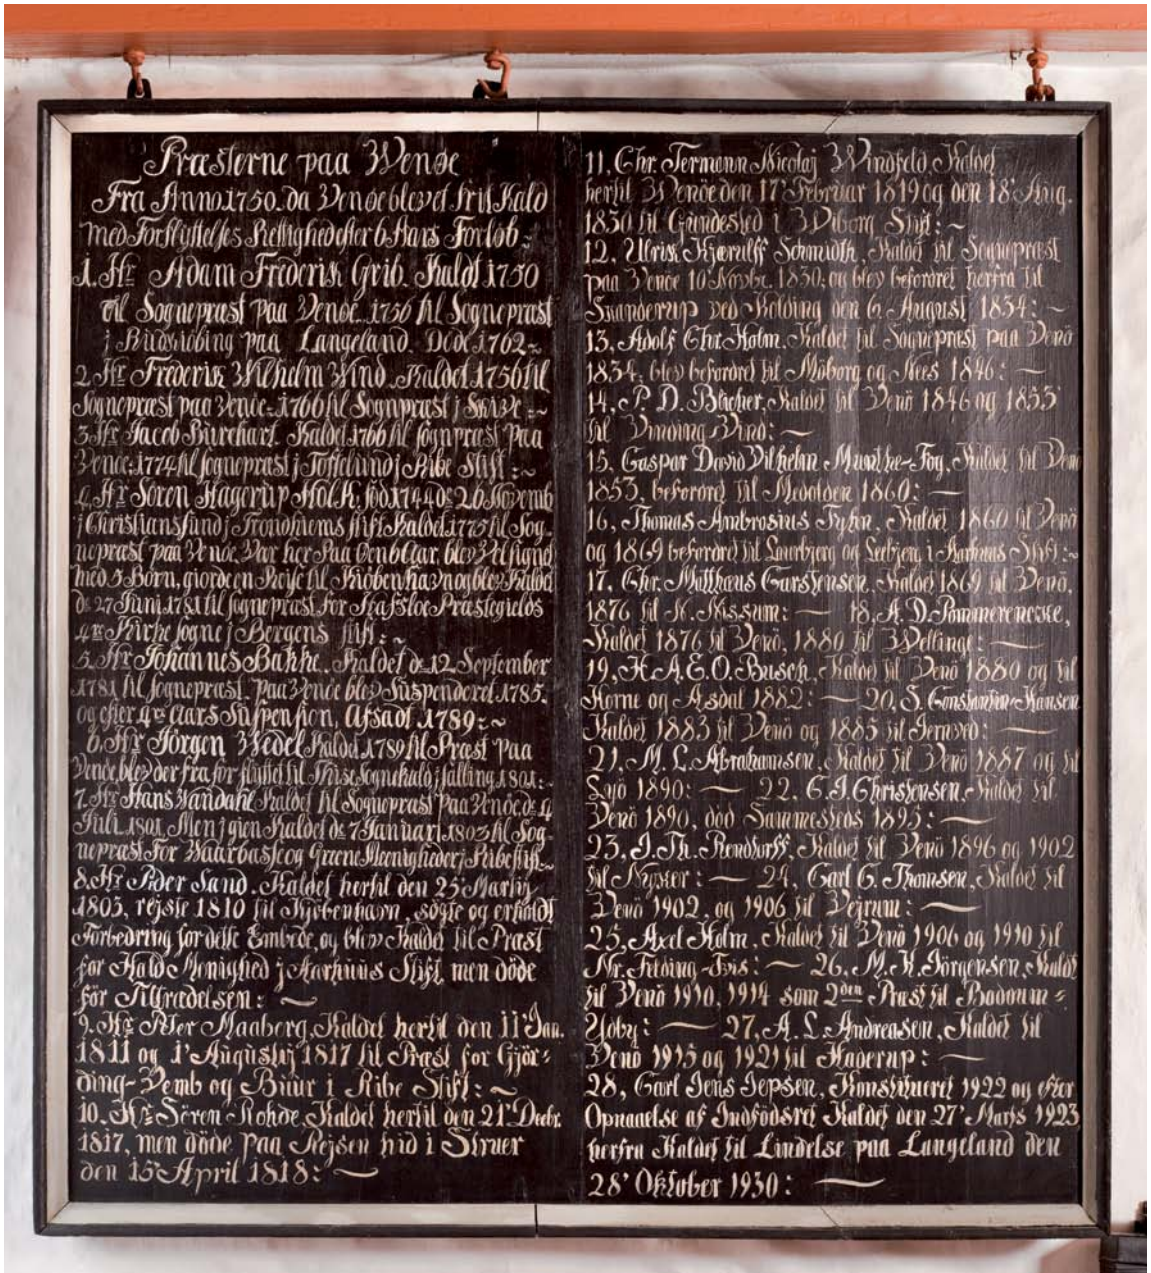 Præsterne paa Wenøe
Fra Anno 1750. da Venøe blevet frit Kald
med Forflyttelses Rettighed efter 6 Aars Forløb:
1. Hr Adam Frederik Grib. Kaldt 1750
til Sognepræst paa Venøe. 1756 til Sognepræst
j Rudkiöbing paa Langeland. Döde 1762
2. Hr Frederik Wilhelm Wind. Kaldet 1756 til
Sognepræst paa Venöe. 1766 til Sognpræst j Skive
3. Hr Jacob Burchart. Kaldet 1766 til sognpræst paa
Venöe: 1774 til sognepræst j Toftelund j Ribe Stift:
4. Hr Sören Hagerup Holk, föd 1744 d: 26 Novemb
j Christiansund j Trondhiems stift Kaldet 1775 til Sog-
nepræst paa Venöe. Var her paa Öen 6 Aar, blev Velsignet
med 5 Börn, giorde en Rejse til Kiöbenhavn og blev Kaldet
d: 27 Juni 1781 til sognepræst for Præstegields
4re Kirke sogne j Bergens stift:
5. Hr Johannes Bakke. Kaldet d: 12 September
1781 til sognepræst. paa Venöe blev Suspenderet 1785.
og efter 4re Aars Suspension, Afsadt 1789:
6. Hr Jörgen Wedel Kaldet 1789 til Præst paa
Venöe blev der fra for flyttet til Thise Sognekald j Salling 1801:
7. Hr Hans Vandahl Kaldet til Sognepræst paa Venöe d: 4
Juli 1801. Men j gien Kaldet d: 7 Januari 1803 til Sog-
nepræst For Vaarbasse og Greene Meenigheder j Ribe stift
8. Hr Peder Sand. Kaldet hertil den 25 Martij
1803, rejste 1810 til Kjöbenhavn, sögte og erholdt
Forbedring for dette Embede, og blev Kaldet til Præst
for Hald Menighed j Aarhuus Stift, men döde
för Tiltrædelsen:
9. Hr Peter Maaberg, Kaldet hertil den 11' Jan.
1811 og 1' Augustij 1817 til Præst for Gjör-
ding-Vemb og Buur i Ribe Stift:
10. Hr Sören Rohde, Kaldet hertil den 21' Decbr.
1817, men döde paa Rejsen hid i Struer
den 15' April 1818:
11, Chr. Termann Nicolaj Windfeld, Kaldet
hertil Wenöe den 17' Februar 1819 og den 18' Aug.
1830 til Gundested i Wiborg Stift:
12, Ulrik Kjærulff Schmidth, Kaldet til Sognepræst
paa Venöe 10' Novbr. 1830; og blev befordret herfra til
Skanderup ved Kolding den 6 August 1834:
13, Adolf Chr. Holm, Kaldet til Sognepræst paa Venö
1834, blev befordret til Möborg og Nees 1846:
14, P. D. Blicher, Kaldet til Venö 1846 og 1853
til Vinding Vind:
15, Caspar David Vilhelm Munthe-Fog, Kaldet til Venö
1853, befordret til Medolden 1860:
16, Thomas Ambrosius Tyhn, Kaldet 1860 til Venö
og 1869 befordret til Laurbjerg og Leebjerg i Aarhuus Stift:
17, Chr. Matthæus Carstensen, Kaldet 1869 til Venö,
1876 til N. Nissum: 18, A. D. Pommerencke,
Kaldet 1876 til Venö, 1880 til Wellinge:
19, H. A. E. O. Busch, Kaldet til Venö 1880 og til
Horne og Asdal 1882: 20, S. Constantin-Hansen
Kaldet 1883 til Venö og 1885 til Jernved:
21, M. L. Abrahamsen, Kaldet til Venö 1887 og til
Sejö 1890: 22, C. J. Christensen, Kaldet til
Venö 1890, död Sammesteds 1895:
23, J. Th. Rendtorff, Kaldet til Venö 1896 og 1902
til Nyker: 24, Carl C. Thomsen, Kaldet til
Venö 1902, og 1906 til Vejrum:
25, Axel Holm, Kaldet til Venö 1906 og 1910 til
Nr. Felding-Tvis: 26, M. K. Jörgensen, Kaldt
til Venö 1910, 1914 som 2den Præst til Bodum-
Ydby: 27, A. L. Andreasen, Kaldet til
Venö 1915 og 1921 til Haderup:
28, Carl Jens Jepsen, Konstitueret 1922 og efter
Opnaaelse af Indfödsret Kaldet den 27' Marts 1923
herfra Kaldet til Lindelse paa Langeland den
28' Oktober 1930: